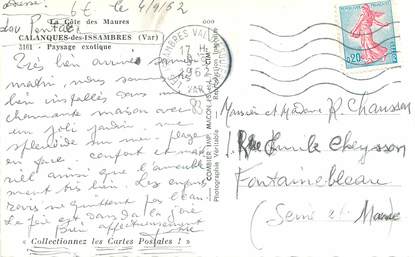 6E le 4/9/62
La Côte des Maures
CALANQUES-des-ISSAMBRES (Var)
3101 - Paysage exotique
Très bien arrivés
matin, nous sommes
bien installés dans une
charmante maison avec
un joli jardin, vue
splendide sur mer, plage
en face, confort
riel ainsi que l'ameuble
ment très bien. Les enfants
ne quittent pas l'eau
La joie est dans la joie.
Bien affectueusement
« Collectionnez les Cartes Postales ! »
COMBIER IMP. MACON
Photographie Véritable
Reproduction interdite
CIM
17 H
VAR
0,20
Monsieur et Madame R. Chausson
Rue
Fontainebleau
(Seine et Marne)